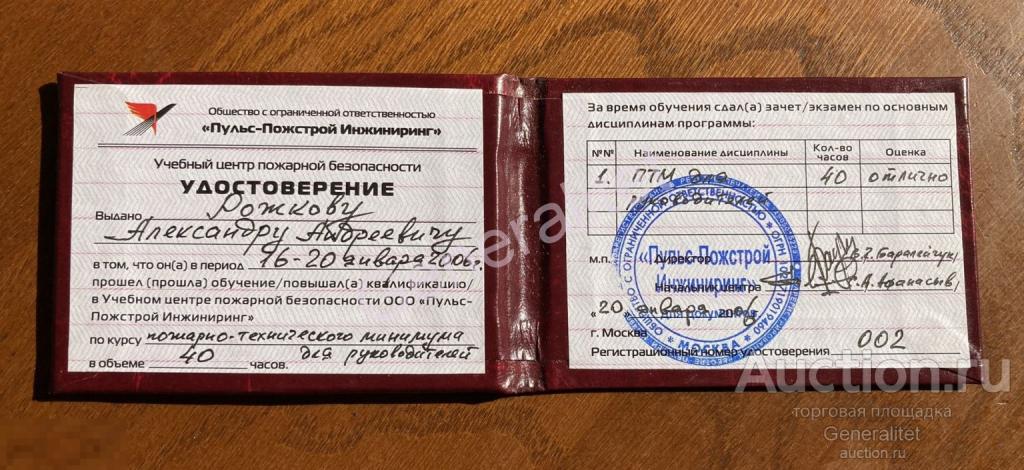 Общество с ограниченной ответственностью
«Пульс-Пожстрой Инжиниринг»
Учебный центр пожарной безопасности
УДОСТОВЕРЕНИЕ
Выдано Рожкову
Александру Андреевичу
в том, что он(а) в период 16-20 января 2006г.
прошел (прошла) обучение/повышал(а) квалификацию/
в Учебном центре пожарной безопасности ООО «Пульс-
Пожстрой Инжиниринг»
по курсу пожарно-технического минимума
для руководителей
в объеме 40 часов.
За время обучения сдал(а) зачет/экзамен по основным
дисциплинам программы:
№№ Наименование дисциплины Кол-во часов Оценка
1. ПТМ для 40 отлично
руководителей
м.п. Директор
Начальник центра
«20 января 2006
г. Москва
Регистрационный номер удостоверения 002
ОБЩЕСТВО С ОГРАНИЧЕННОЙ ОТВЕТСТВЕННОСТЬЮ
«Пульс-Пожстрой
Инжиниринг»
Для документов
* МОСКВА *
Auction.ru
торговая площадка
Generalitet
auction.ru